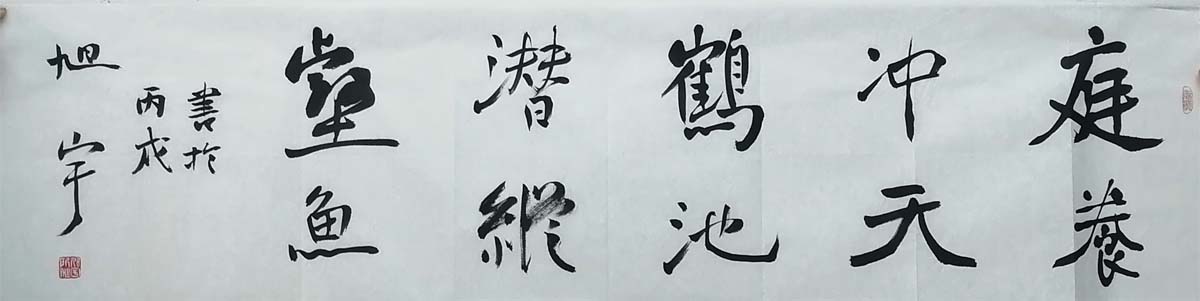 庭養
冲天
鶴池
潜縱
壑魚
書於
丙戌
旭宇